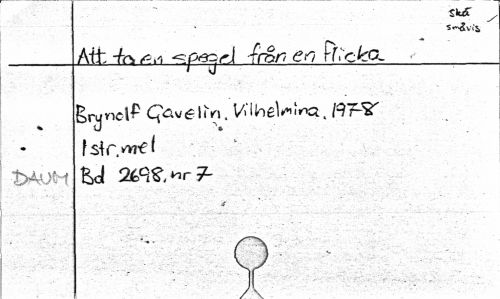 skä
småvis
Att ta en spegel från en flicka
Brynolf Gavelin, Vilhelmina, 1978
1 str, mel
DAUM Bd 2698, nr 7